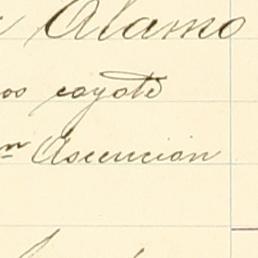 Alamo
os coyote
n Ascencion